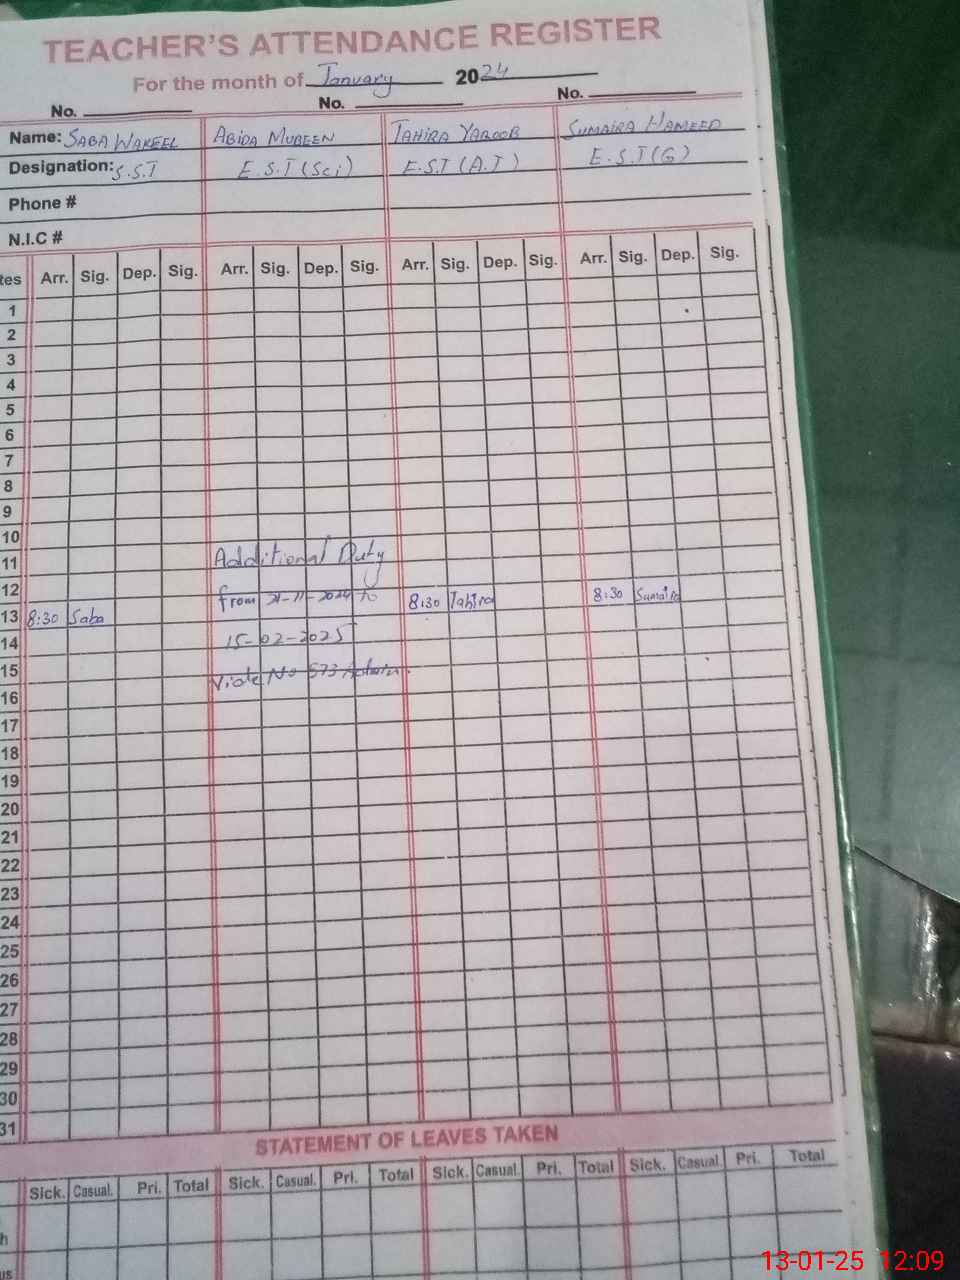 TEACHER'S ATTENDANCE REGISTER
For the month of January 2024
No. No. No.
Name: SABA WAKEEL ABIDA MUBEEN TAHIRA YAQOOB SUMAIRA HAMEED
Designation: S.S.T E.S.T (Sci) E.S.T (A.T) E.S.T (G)
Phone #
N.I.C #
tes Arr. Sig. Dep. Sig. Arr. Sig. Dep. Sig. Arr. Sig. Dep. Sig. Arr. Sig. Dep. Sig.
1
2
3
4
5
6
7
8
9
10
11 Additional Duty
12 from 21-11-2024 to
13 8:30 Saba 8:30 Tahira 8:30 Sumaira
14 15-02-2025
15 No 573
16
17
18
19
20
21
22
23
24
25
26
27
28
29
30
31
STATEMENT OF LEAVES TAKEN
Sick. Casual. Pri. Total Sick. Casual. Pri. Total Sick. Casual. Pri. Total Sick. Casual. Pri. Total
h
us
13-01-25 12:09